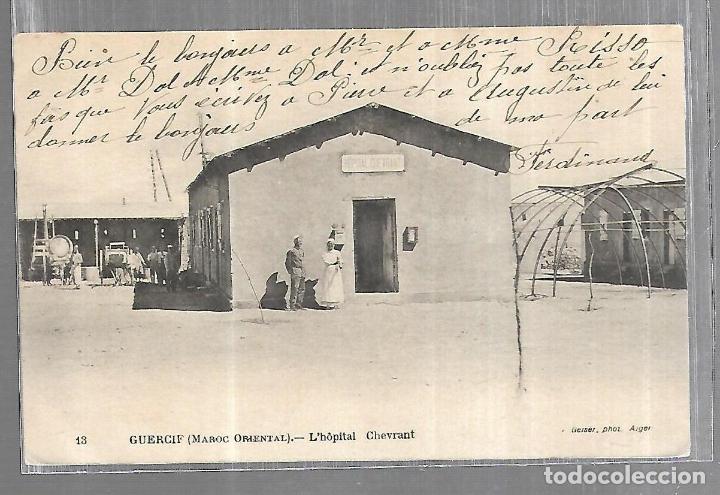 Bien le bonjours a Mr et a Mme Risso
a Mr Dol et Mme Dol et n'oubliez pas toute les
fois que vous écrivez a Pierre et a Augustin de lui
donner le bonjours de ma part
Ferdinand
HOPITAL CHEVRANT
13 GUERCIF (MAROC ORIENTAL).— L'hôpital Chevrant
Geiser, phot. Alger
todocoleccion.net